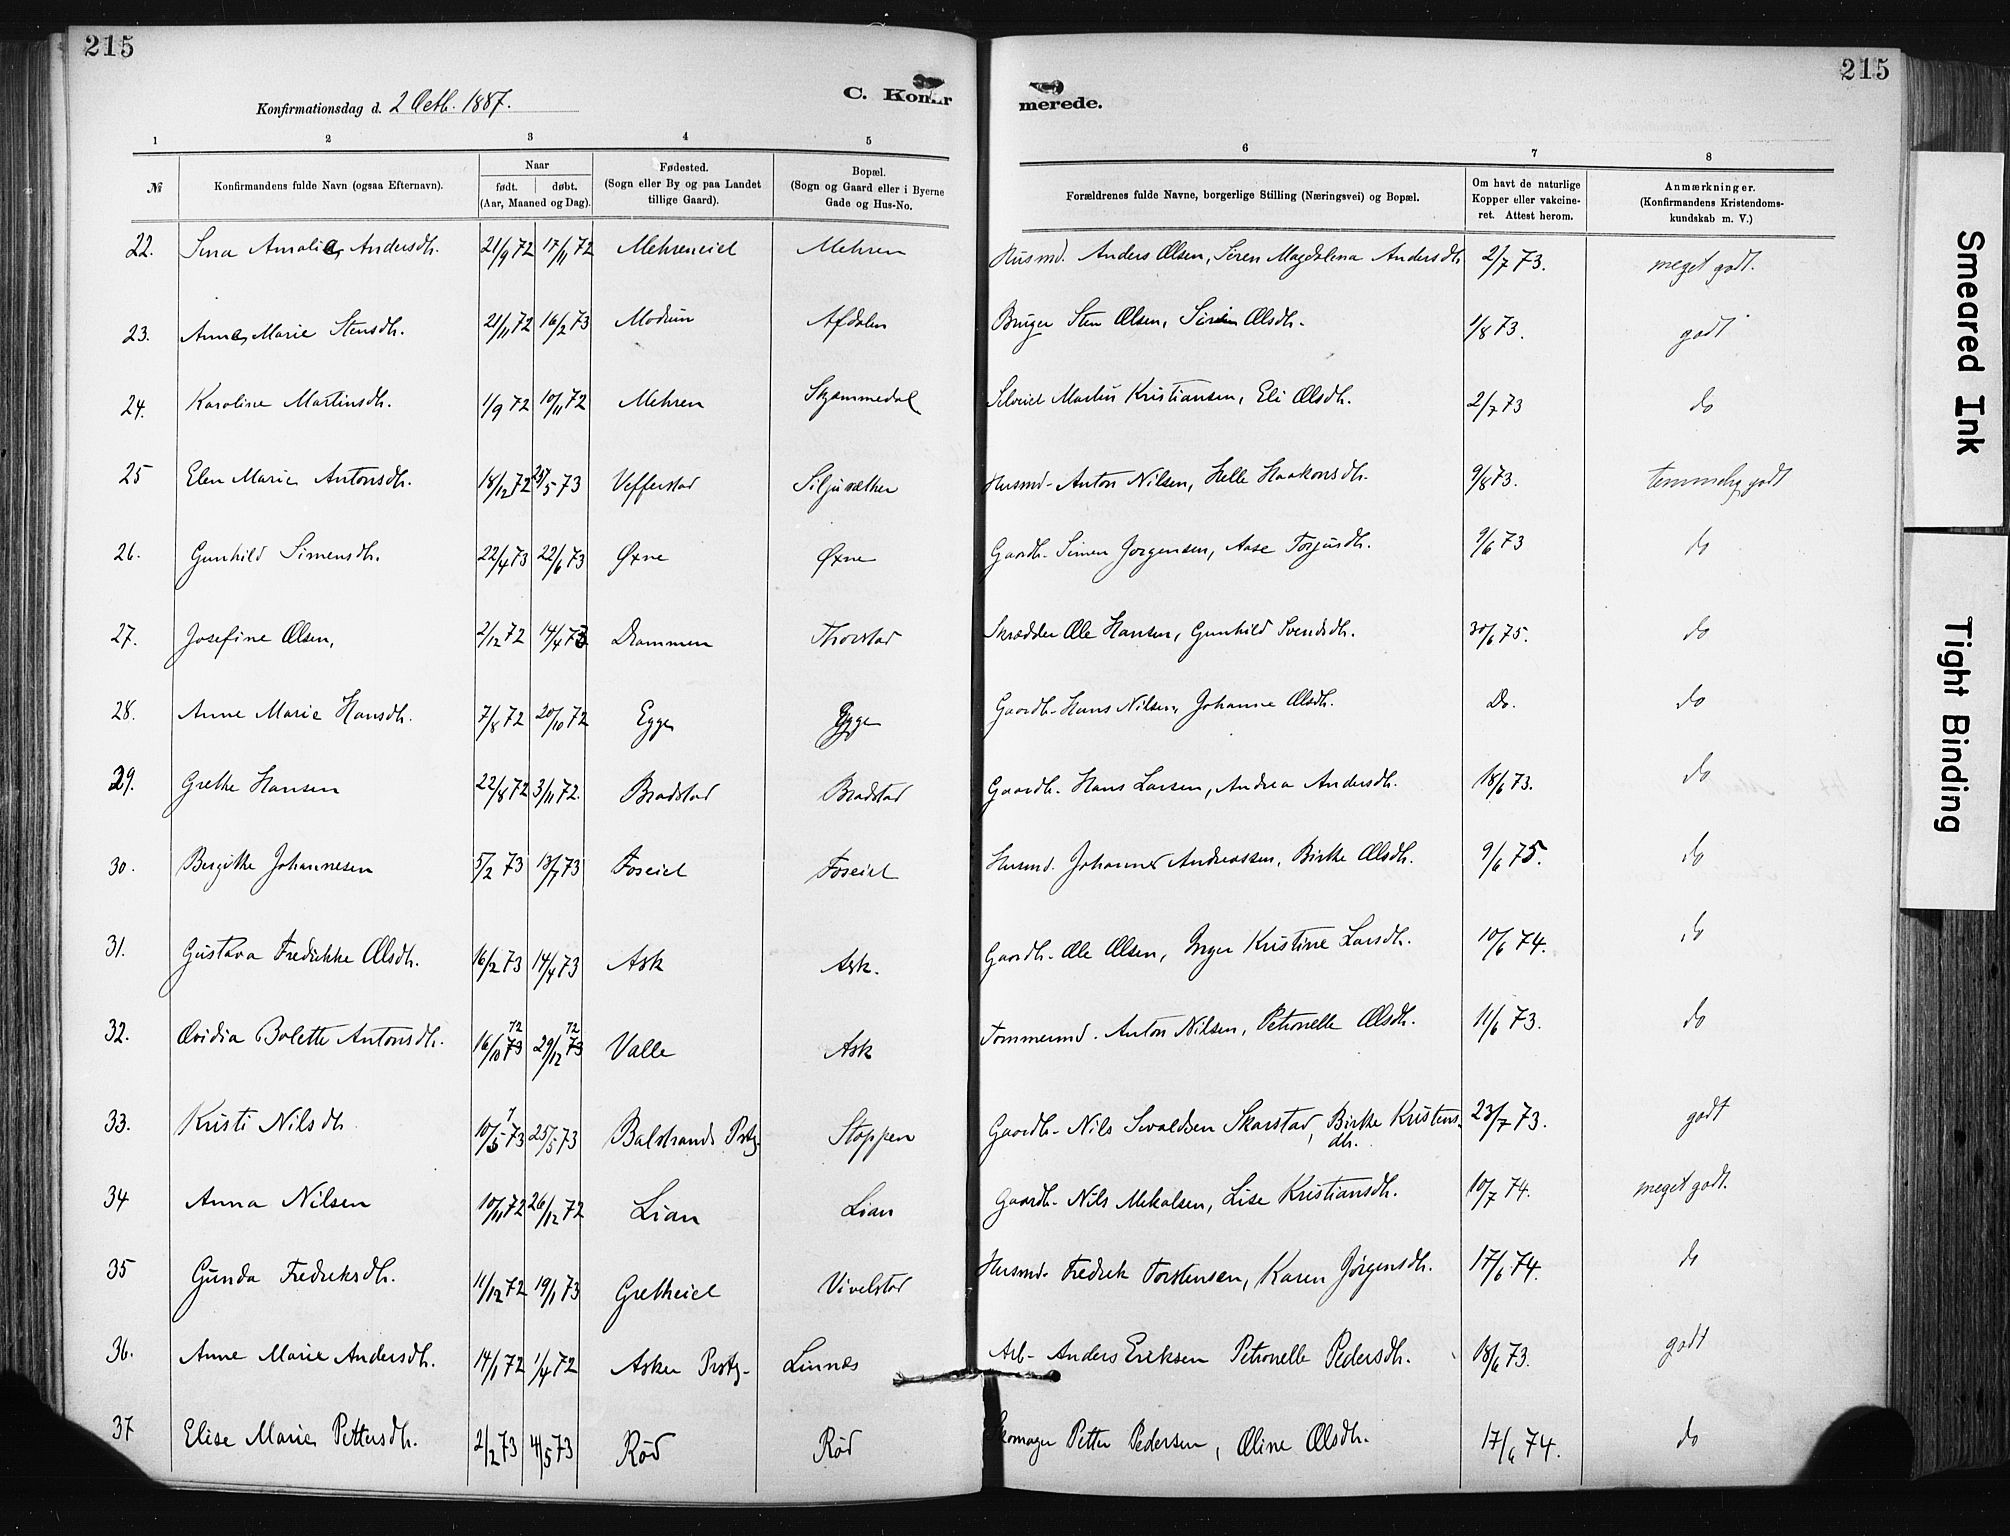 215
215
Konfirmationsdag d. 2 Octb. 1887.
C. Konfir
merede.
1 2 3 4 5 6 7 8
№
Konfirmandens fulde Navn (ogsaa Efternavn).
Naar
født. døbt.
(Aar, Maaned og Dag).
Fødested.
(Sogn eller By og paa Landet
tillige Gaard).
Bopæl.
(Sogn og Gaard eller i Byerne
Gade og Hus-No.
Forældrenes fulde Navne, borgerlige Stilling (Næringsvei) og Bopæl.
Om havt de naturlige
Kopper eller vakcine-
ret. Attest herom.
Anmærkninger.
(Konfirmandens Kristendoms-
kundskab m. V.)
22. Sina Amalie Andersdh. 21/9 72 17/11 72 Mehreneiet Mehren Husmd. Anders Olsen, Siren Magdalena Andersdh 2/7 73. meget godt.
23. Anne Marie Stensdh. 21/11 72 16/2 73 Modum Afdalen Bruger Sten Olsen, Siren Olsdh. 1/8 73. godt
24. Karoline Martinsdh. 1/9 72 10/11 72 Mehren Skjæmmedal Selveier Martin Kristiansen, Eli Olsdh. 2/7 73 do
25 Elen Marie Antonsdh. 18/12 72 25/5 73 Vefferstad Siljusæther Husmd. Anton Nilsen, Helle Haakonsdh. 9/8 73. temmelig godt
26. Gunhild Simensdh. 22/4 73 22/6 73 Øxne Øxne Gaardb. Simen Jorgensen, Aase Torjusdh. 9/6 73 do
27. Josefine Olsen, 2/12 72 14/4 73 Drammen Thorstad Skrædder Ole Hansen, Gunhild Svendsdh. 30/6 75. do
28. Anne Marie Hansdh. 7/8 72 20/10 72 Egge Egge Gaardb. Hans Nilsen, Johanne Olsdh. Do. do
29. Grethe Hansen 22/8 72 3/11 72. Bradstad Bradstad Gaardb. Hans Larsen, Andrea Andersdh. 18/6 73. do
30. Birgitte Johannesen 5/2 73 13/7 73 Foseiet Foseiet Husmd. Johannes Andreassen, Birthe Olsdh. 9/6 75. do
31. Gustava Fredrikke Olsdh. 16/2 73 14/4 73 Ask Ask. Gaardb. Ole Olsen, Inger Kristine Larsdh. 10/6 74. do
32. Ovidia Bolette Antonsdh. 16/10 73 72 29/12 73 72 Valle Ask Tommermd. Anton Nilsen, Petronelle Olsdh. 11/6 73. do
33. Kristi Nilsdh 10/5 73 25/5 73 Balstrands Prstg. Stoppen Gaardb. Nils Sivaldsen Skarstad, Birthe Kristens- 23/7 73. godt
dh.
34 Anna Nilsen 10/11 72 26/12 72 Lian Lian Gaardb. Nils Mikalsen, Lise Kristiansdh. 10/7 74. meget godt.
35 Gunda Fredriksdh. 11/12 72 19/1 73 Gretheiet Vivelstad Husmd. Fredrik Torstensen, Karen Jørgensdh. 17/6 74. do
36. Anne Marie Andersdh. 14/1 72 1/4 72 Asker Prstg. Linnes Arb. Anders Eriksen Petronelle Pedersdh. 18/6 73. godt
37 Elise Marie Pettersdh. 2/2 73 4/5 73 Rød Rød Skomager Petter Pedersen, Oline Olsdh. 17/6 74. do
Smeared Ink
Tight Binding